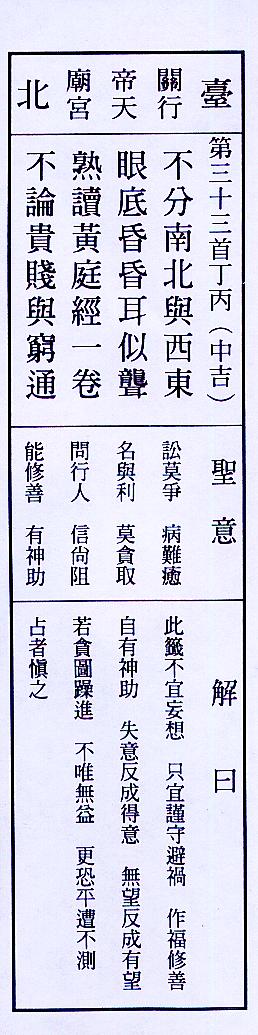 臺
關行
帝天
廟宮
北
第三十三首丁丙（中吉）
不分南北與西東
眼底昏昏耳似聾
熟讀黃庭經一卷
不論貴賤與窮通
聖意
訟莫爭 病難癒
名與利 莫貪取
問行人 信尙阻
能修善 有神助
解曰
此籤不宜妄想 只宜謹守避禍 作福修善
自有神助 失意反成得意 無望反成有望
若貪圖躁進 不唯無益 更恐平遭不測
占者愼之